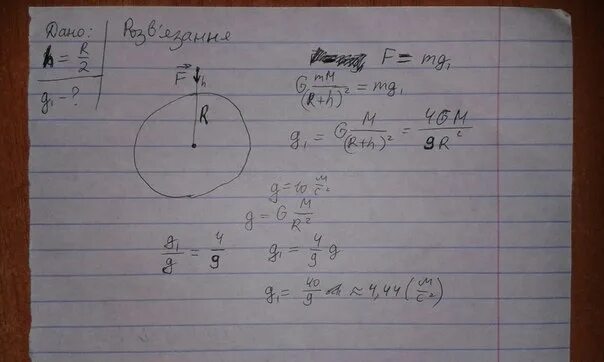 Дано:
h = R/2
g₁ - ?
Розв'язання
F⃗ h
R
F = mg₁
G mM/(R+h)² = mg₁
g₁ = G M/(R+h)² = 4GM/9R²
g = 10 м/с²
g = G M/R²
g₁/g = 4/9
g₁ = 4/9 g
g₁ = 40/9 ≈ 4,44 (м/с²)